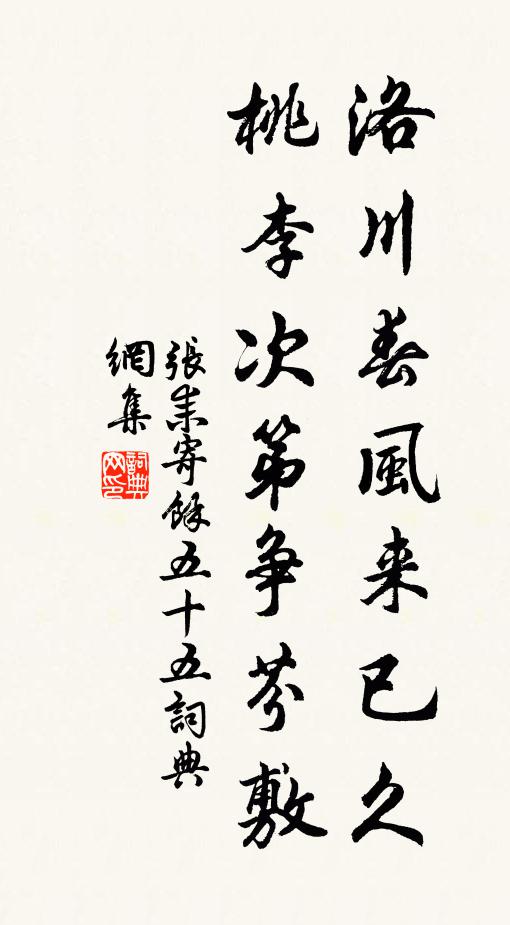 洛川春風来已久
桃李次第争芬敷
張耒寄餘五十五詞典
網集
詞典
网印